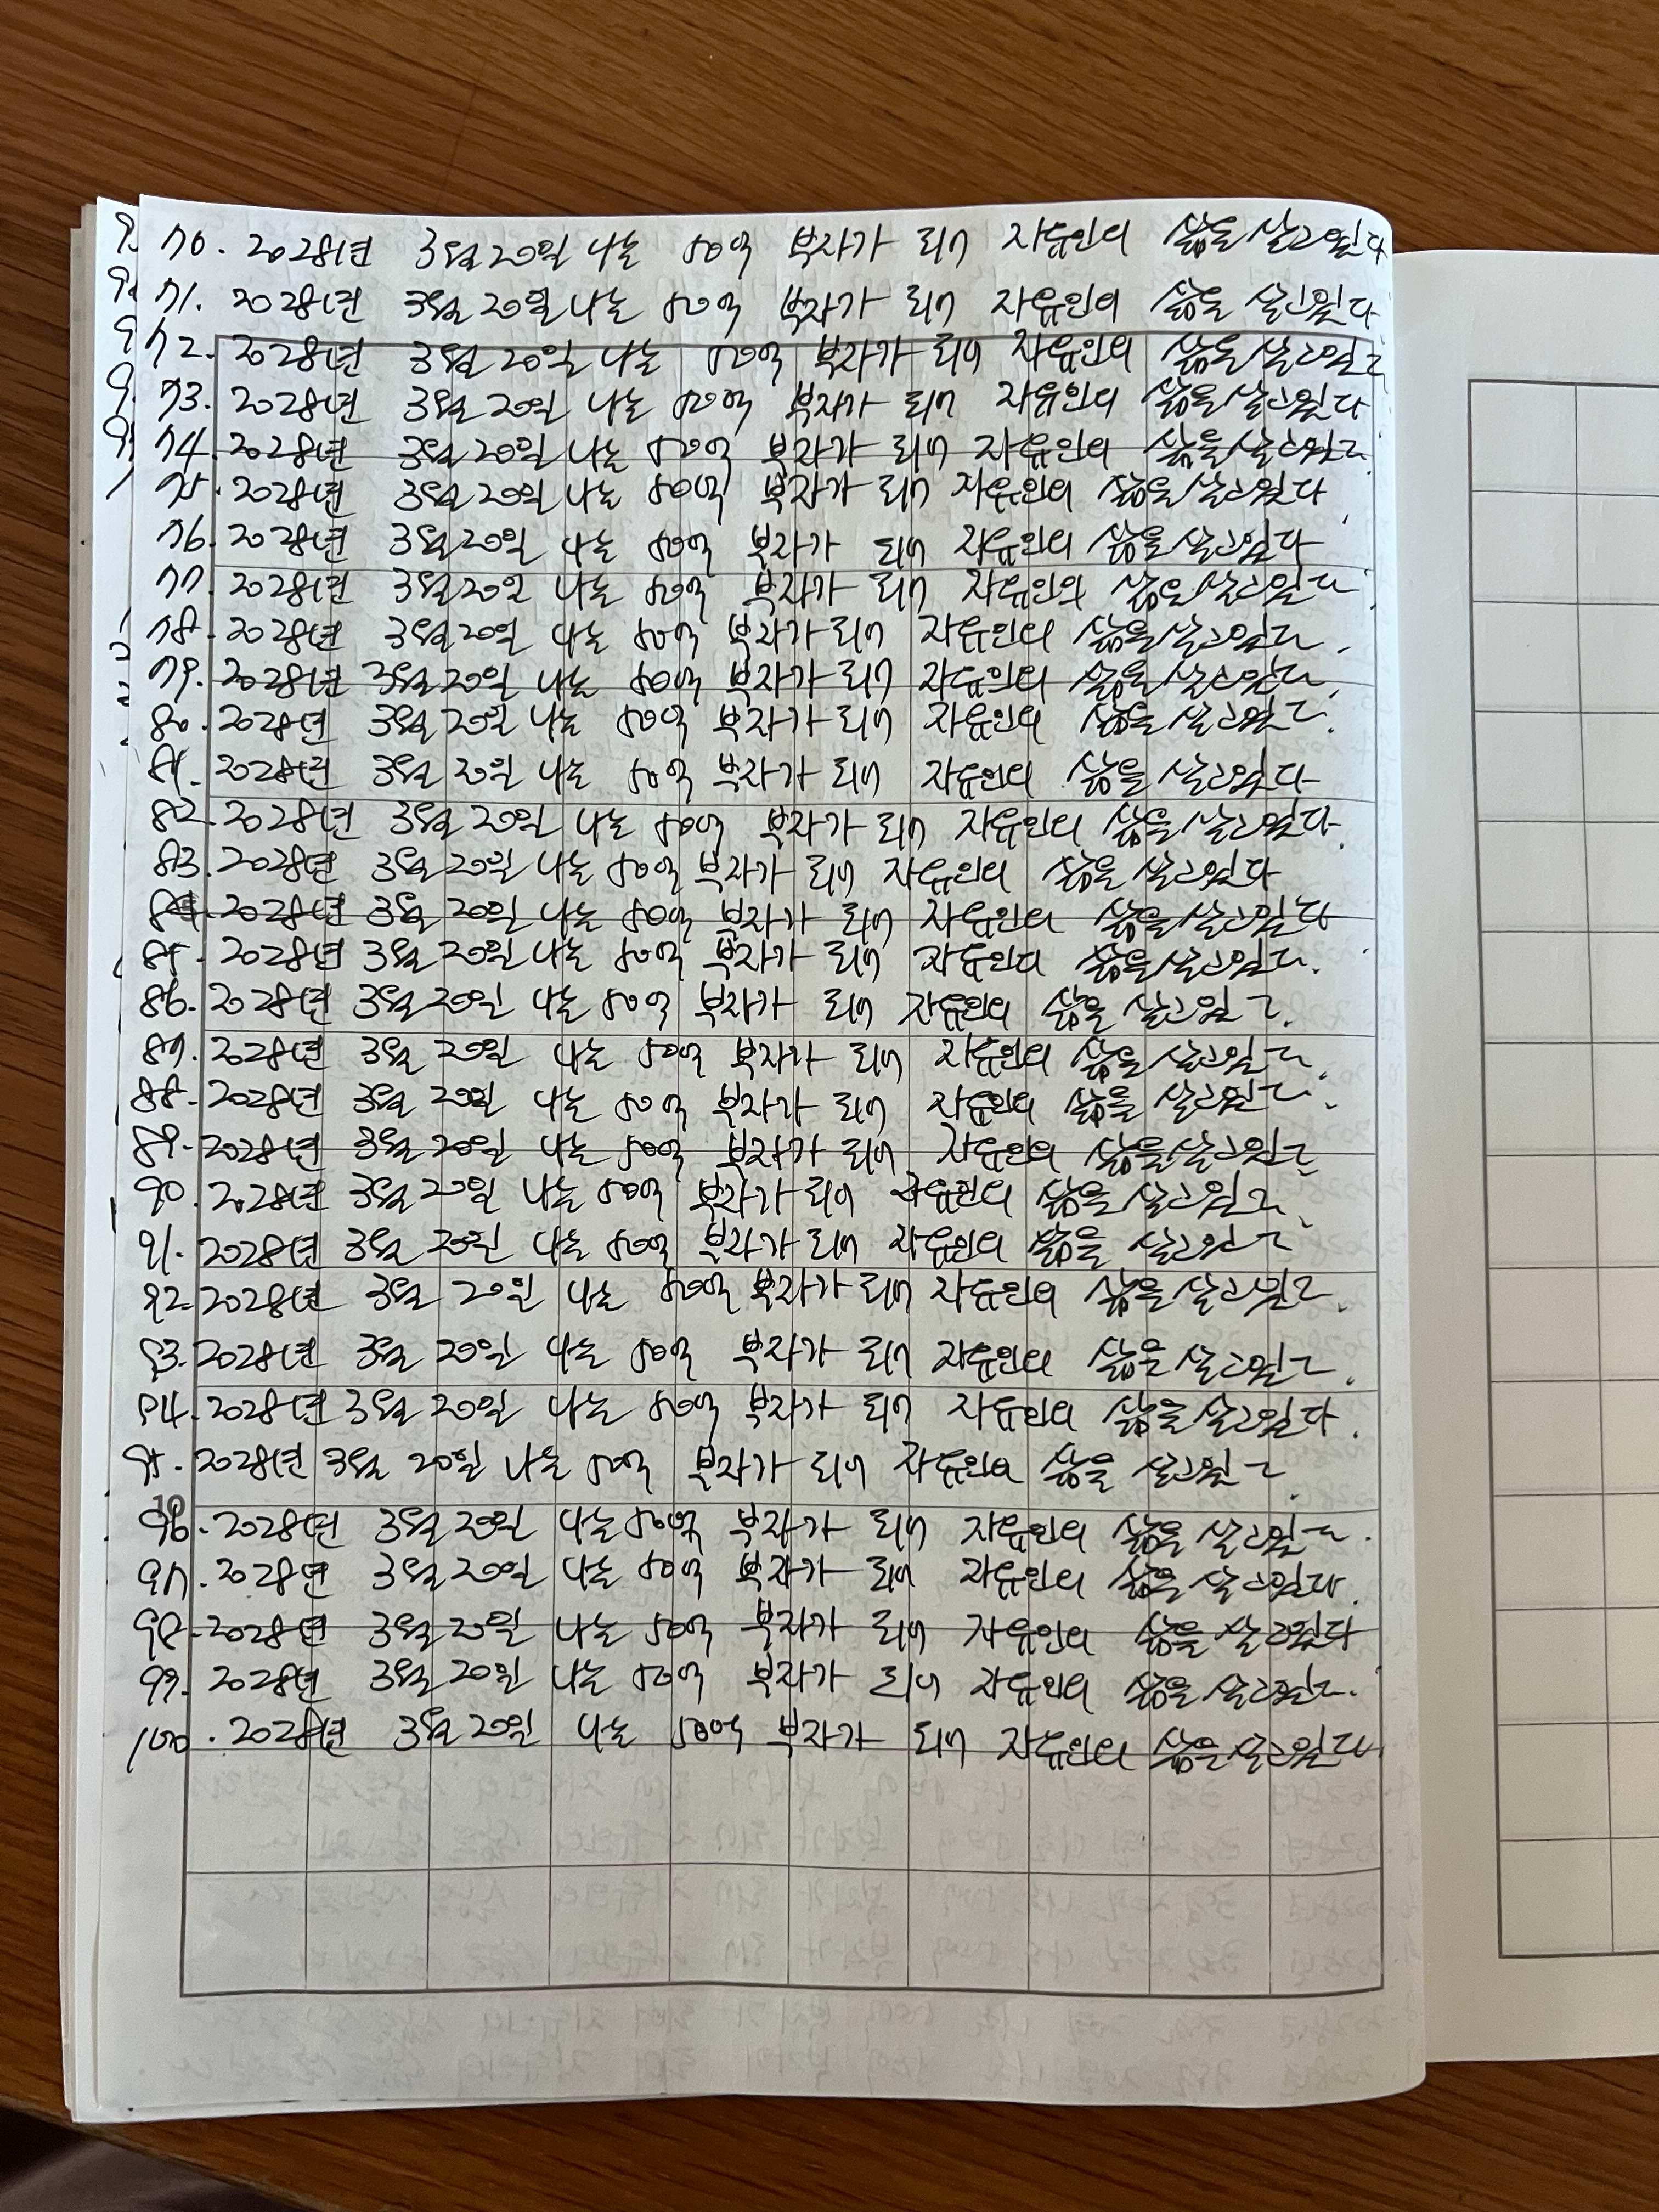 70. 2028년 3월 20일 나는 50억 부자가 되어 자유인의 삶을 살고있다
71. 2028년 3월 20일 나는 50억 부자가 되어 자유인의 삶을 살고있다
72. 2028년 3월 20일 나는 50억 부자가 되어 자유인의 삶을 살고있다
73. 2028년 3월 20일 나는 50억 부자가 되어 자유인의 삶을 살고있다
74. 2028년 3월 20일 나는 50억 부자가 되어 자유인의 삶을 살고있다.
75. 2028년 3월 20일 나는 50억 부자가 되어 자유인의 삶을 살고있다.
76. 2028년 3월 20일 나는 50억 부자가 되어 자유인의 삶을 살고있다.
77. 2028년 3월 20일 나는 50억 부자가 되어 자유인의 삶을 살고있다.
78. 2028년 3월 20일 나는 50억 부자가 되어 자유인의 삶을 살고있다.
79. 2028년 3월 20일 나는 50억 부자가 되어 자유인의 삶을 살고있다.
80. 2028년 3월 20일 나는 50억 부자가 되어 자유인의 삶을 살고있다.
81. 2028년 3월 20일 나는 50억 부자가 되어 자유인의 삶을 살고있다
82. 2028년 3월 20일 나는 50억 부자가 되어 자유인의 삶을 살고있다.
83. 2028년 3월 20일 나는 50억 부자가 되어 자유인의 삶을 살고있다
84. 2028년 3월 20일 나는 50억 부자가 되어 자유인의 삶을 살고있다
85. 2028년 3월 20일 나는 50억 부자가 되어 자유인의 삶을 살고있다.
86. 2028년 3월 20일 나는 50억 부자가 되어 자유인의 삶을 살고있다.
87. 2028년 3월 20일 나는 50억 부자가 되어 자유인의 삶을 살고있다.
88. 2028년 3월 20일 나는 50억 부자가 되어 자유인의 삶을 살고있다.
89. 2028년 3월 20일 나는 50억 부자가 되어 자유인의 삶을 살고있다.
90. 2028년 3월 20일 나는 50억 부자가 되어 자유인의 삶을 살고있다.
91. 2028년 3월 20일 나는 50억 부자가 되어 자유인의 삶을 살고있다
92. 2028년 3월 20일 나는 50억 부자가 되어 자유인의 삶을 살고있다.
93. 2028년 3월 20일 나는 50억 부자가 되어 자유인의 삶을 살고있다.
94. 2028년 3월 20일 나는 50억 부자가 되어 자유인의 삶을 살고있다.
95. 2028년 3월 20일 나는 50억 부자가 되어 자유인의 삶을 살고있다.
10
96. 2028년 3월 20일 나는 50억 부자가 되어 자유인의 삶을 살고있다.
97. 2028년 3월 20일 나는 50억 부자가 되어 자유인의 삶을 살고있다.
98. 2028년 3월 20일 나는 50억 부자가 되어 자유인의 삶을 살고있다
99. 2028년 3월 20일 나는 50억 부자가 되어 자유인의 삶을 살고있다.
100. 2028년 3월 20일 나는 50억 부자가 되어 자유인의 삶을 살고있다.